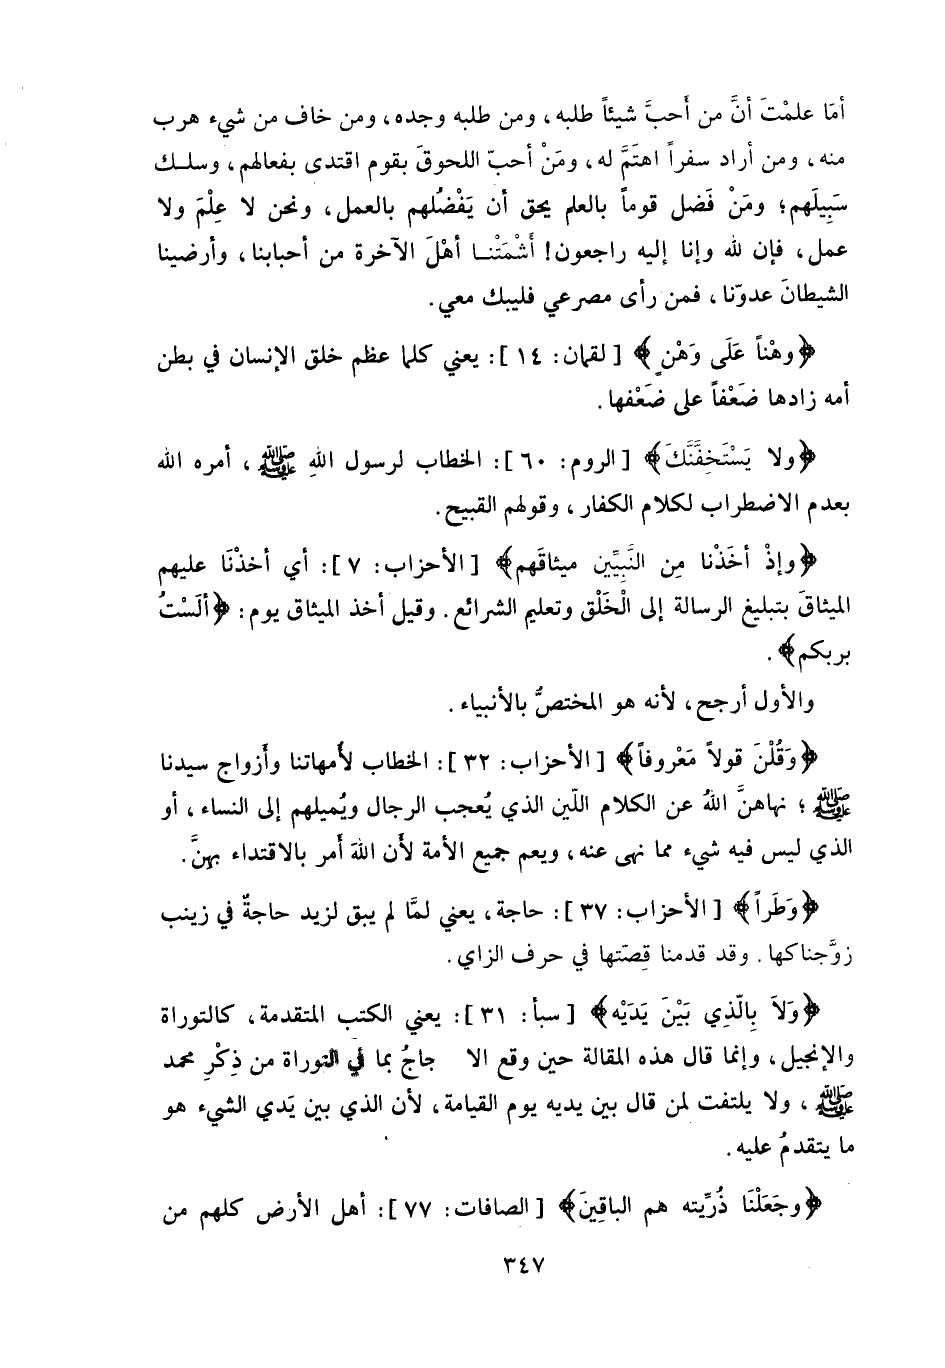 أمَا علمْتَ أنَّ من أحبَّ شيئاً طلبه، ومن طلبه وجده، ومن خاف من شيء هرب
منه، ومن أراد سفراً اهتَمَّ له، ومَنْ أحبّ اللحوقَ بقوم اقتدى بفعالهم، وسلـك
سَبِيلَهم؛ ومَنْ فَضل قوماً بالعلم يحق أن يَفْضُلهم بالعمل، ونحن لا عِلْمَ ولا
عمل، فإن لله وإنا إليه راجعون! أَشْمَتْنـا أهْلَ الآخرة من أحبابنا، وأرضينا
الشيطانَ عدوّنا، فمن رأى مصرعي فليبك معي.
﴿وهْناً عَلَى وَهْنٍ﴾ [لقمان: ١٤]: يعني كلما عظم خلق الإنسان في بطن
أمه زادها ضَعْفاً على ضَعْفها.
﴿ولا يَسْتَخِفَّنَّكَ﴾ [الروم: ٦٠]: الخطاب لرسول اللهِ ﷺ، أمره الله
بعدم الاضطراب لكلام الكفار، وقولهم القبيح.
﴿وإذْ أخَذْنا مِن النَّبِيِّين ميثاقَهم﴾ [الأحزاب: ٧]: أي أخذْنَا عليهم
الميثاقَ بتبليغ الرسالة إلى الْخَلْق وتعليم الشرائع. وقيل أخذ الميثاق يوم: ﴿ألَسْتُ
بربكم﴾.
والأول أرجح، لأنه هو المختصُّ بالأنبياء.
﴿وَقُلْنَ قولاً مَعْروفاً﴾ [الأحزاب: ٣٢]: الخطاب لأمهاتنا وأزواج سيدنا
ﷺ؛ نهاهنَّ اللهُ عن الكلام اللّين الذي يُعجب الرجال ويُميلهم إلى النساء، أو
الذي ليس فيه شيء مما نهى عنه، ويعم جميع الأمة لأن اللهَ أمر بالاقتداء بهنَّ.
﴿وَطَراً﴾ [الأحزاب: ٣٧]: حاجة، يعني لمَّا لم يبق لزيد حاجةٌ في زينب
زوَّجناكها. وقد قدمنا قِصتها في حرف الزاي.
﴿وَلاَ بِالّذِي بَيْنَ يَدَيْه﴾ [سبأ: ٣١]: يعني الكتب المتقدمة، كالتوراة
والإنجيل، وإنما قال هذه المقالة حين وقع الا جاجُ بما في التوراة من ذِكْرِ محمد
ﷺ، ولا يلتفت لمن قال بين يديه يوم القيامة، لأن الذي بين يَدي الشيء هو
ما يتقدمُ عليه.
﴿وجَعَلْنَا ذُرِّيته هم الباقِينَ﴾ [الصافات: ٧٧]: أهل الأرض كلهم من
٣٤٧